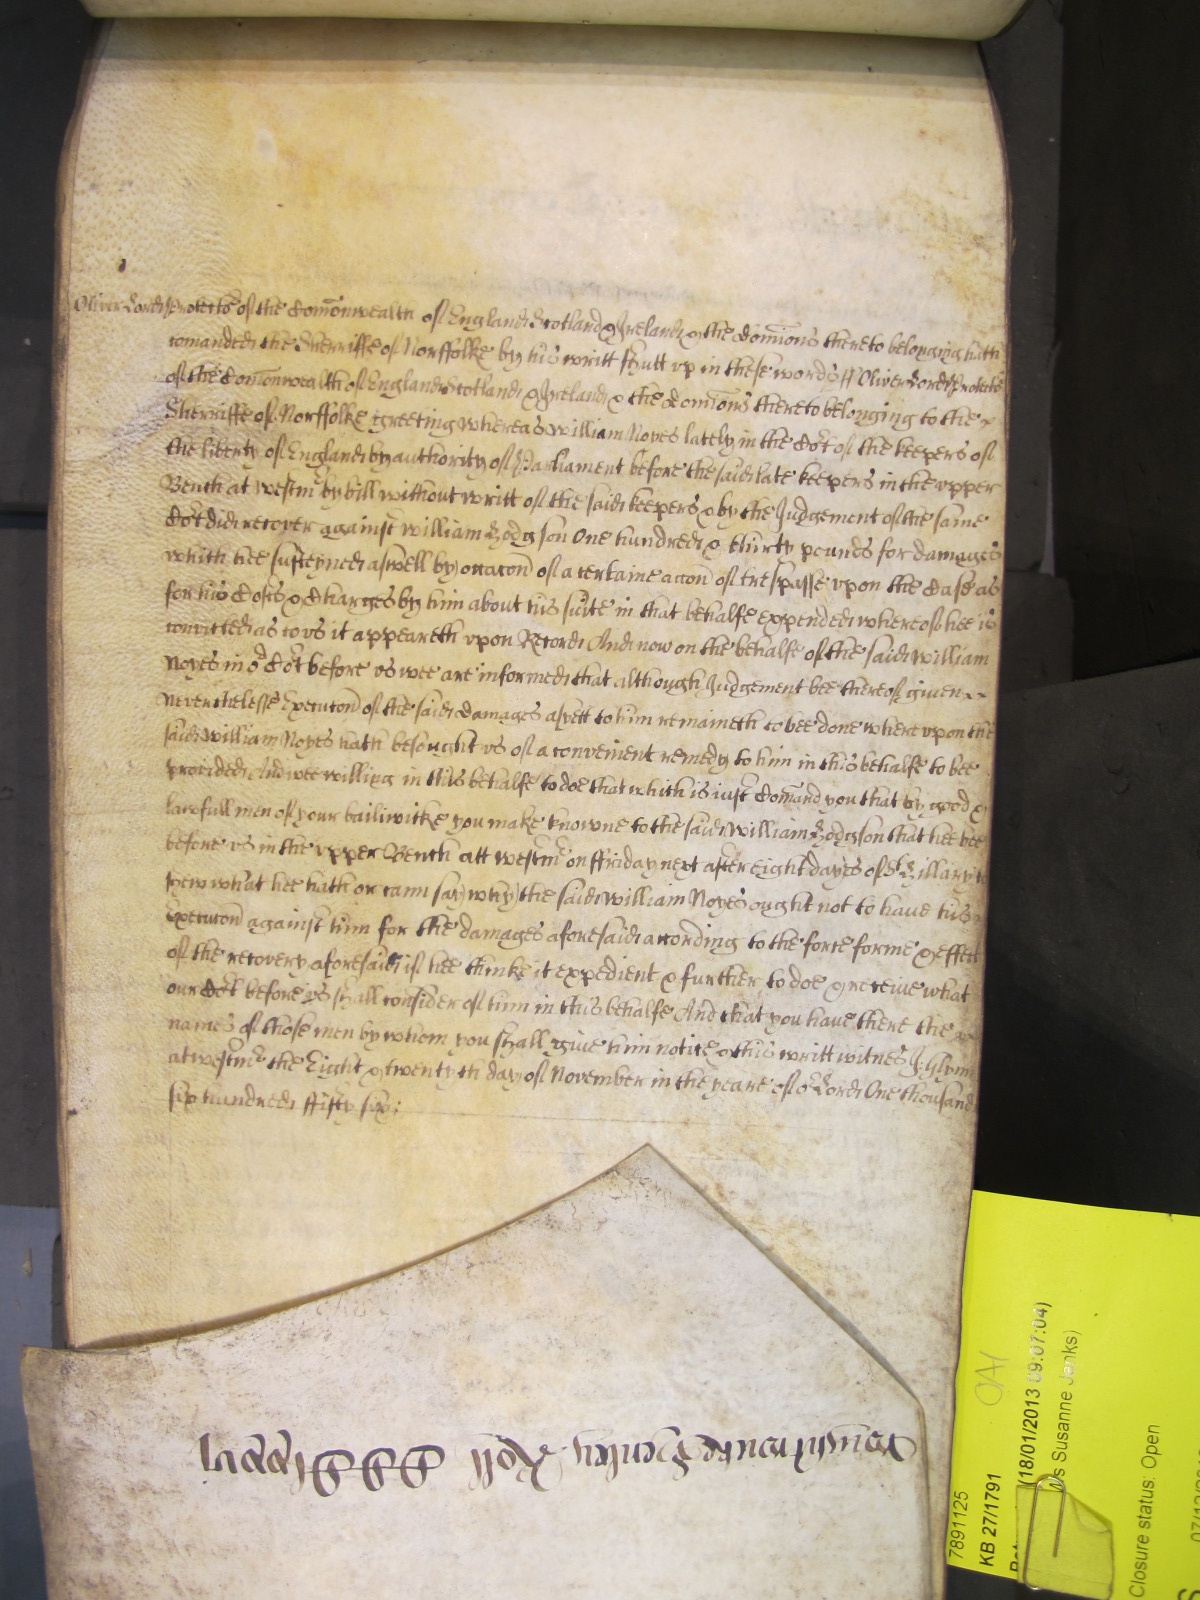 Oliver Lord Protector of the Comonwealth of England Scotland & Ireland & the dominions thereto belonging hath
comanded the Sherriffe of Norffolke by his writt shutt vp in these words // Oliver Lord Protector
of the Comonwealth of England Scotland & Ireland & the dominions thereto belonging to the
Sherriffe of Norffolke greeting whereas William Noyes lately in the Cort of the keepers of
the liberty of England by authority of Parliament before the said late keepers in the vpper
Bench at Westmr by bill without writt of the said keepers & by the Judgement of the same
Cort did recover against William Hodgson One hundred & thirty pounds for damages
which hee susteyned aswell by occacon of a certaine accon of trespasse vpon the Case as
for his Costs & Charges by him about his suite in that behalfe expended whereof hee is
convicted as to vs it appeareth vpon Record And now on the behalfe of the said William
Noyes in or Cort before vs wee are informed that although Judgement bee thereof given
neverthelesse Execucon of the said damages as yett to him remaineth to bee done where vpon the
said William Noyes hath besought vs of a convenient remedy to him in this behalfe to bee
provided And wee willing in this behalfe to doe that which is iust Comand you that by good &
lawfull men of your bailiwicke you make knowne to the said William Hodgson that hee bee
before vs in the vpper Bench att Westmr on ffriday next after eight dayes of St Hillary to
shew what hee hath or cann say why the said William Noyes ought not to have his
Execucon against him for the damages aforesaid according to the force forme & effect
of the recovery aforesaid if hee thinke it expedient & further to doe & receive what
our Cort before vs shall consider of him in this behalfe And that you have there the
names of those men by whom you shall give him notice & this writt witnes J. Glynn
at westmr the Eight & twentyth day of November in the yeare of or Lord One thousand
six hundred ffifty six:
7891125
KB 27/1791
(18/01/2013 09:07:04)
s Susanne Jenks)
Closure status: Open